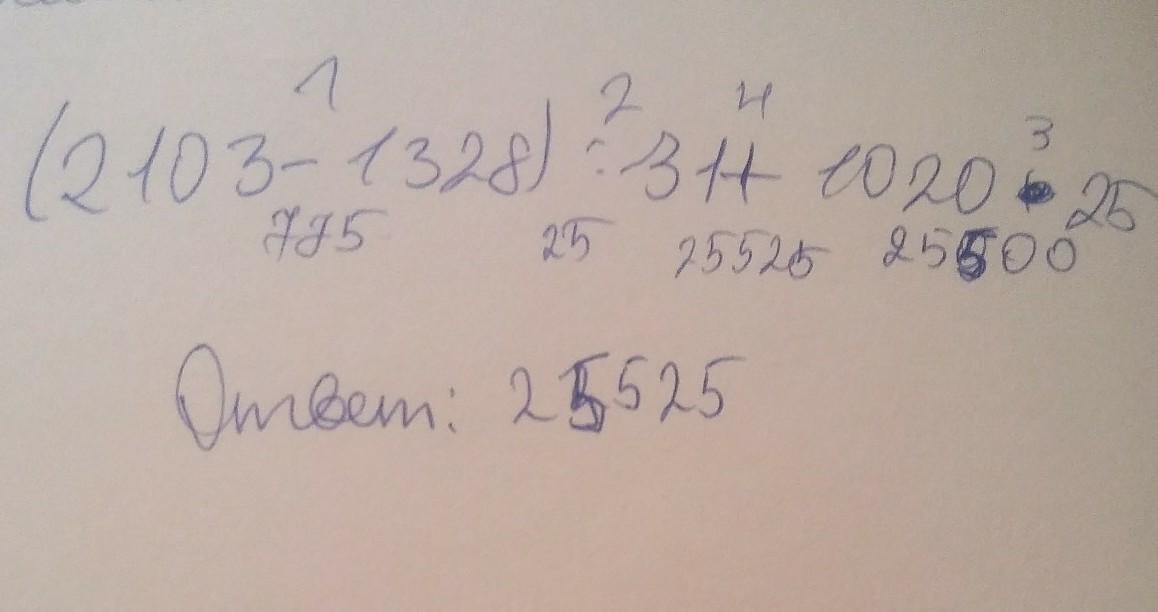 1 2 4 3
(2103-1328):31+1020·25
775 25 25525 25500
Ответ: 25525